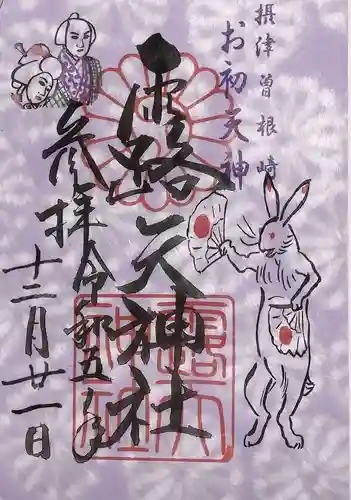 摂津曽根崎
お初天神
露天神社
参拝令和五年
十二月廿一日
露天神社